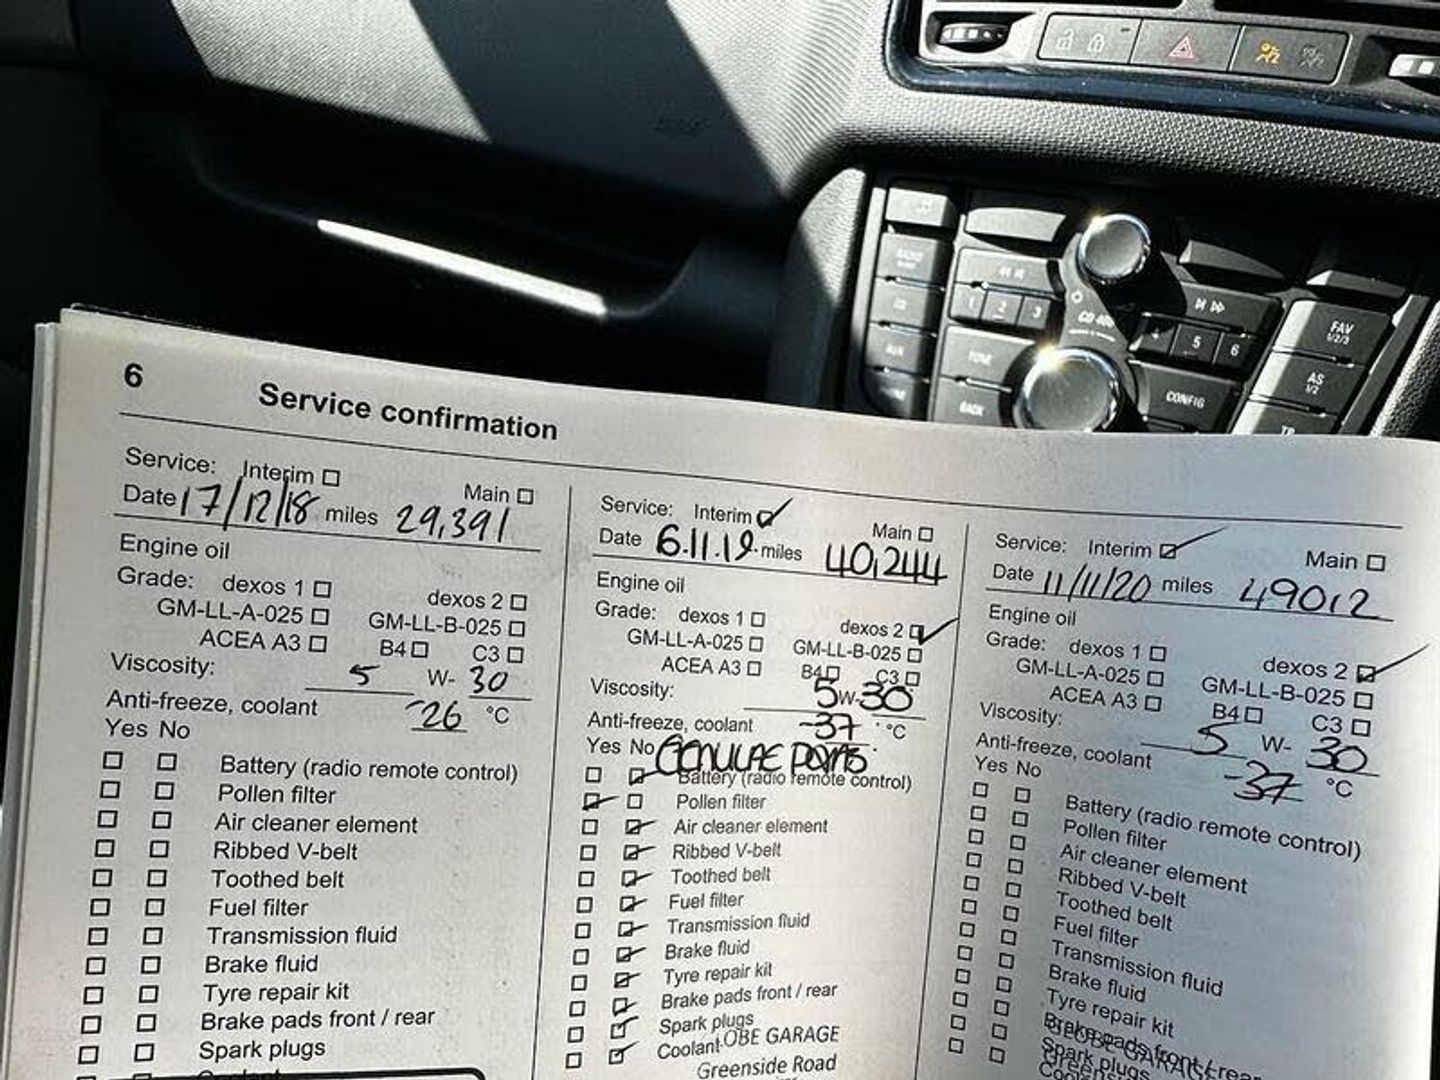 1 2 3
CD 400
4 5 6
FAV
1/2/3
AS
1/2
AUX
TONE
CONFIG
BACK
6 Service confirmation
Service: Interim Main
Date 17/12/18 miles 29,391
Engine oil
Grade: dexos 1 dexos 2
GM-LL-A-025 GM-LL-B-025
ACEA A3 B4 C3
Viscosity: 5 W- 30
Anti-freeze, coolant -26 °C
Yes No
Battery (radio remote control)
Pollen filter
Air cleaner element
Ribbed V-belt
Toothed belt
Fuel filter
Transmission fluid
Brake fluid
Tyre repair kit
Brake pads front / rear
Spark plugs
Coolant
Service: Interim Main
Date 6.11.19. miles 40,244
Engine oil
Grade: dexos 1 dexos 2
GM-LL-A-025 GM-LL-B-025
ACEA A3 B4 C3
Viscosity: 5 W- 30
Anti-freeze, coolant -37 °C
Yes No
Battery (radio remote control)
Pollen filter
Air cleaner element
Ribbed V-belt
Toothed belt
Fuel filter
Transmission fluid
Brake fluid
Tyre repair kit
Brake pads front / rear
Spark plugs
Coolant OBE GARAGE
Greenside Road
Service: Interim Main
Date 11/11/20 miles 49012
Engine oil
Grade: dexos 1 dexos 2
GM-LL-A-025 GM-LL-B-025
ACEA A3 B4 C3
Viscosity: 5 W- 30
Anti-freeze, coolant -37 °C
Yes No
Battery (radio remote control)
Pollen filter
Air cleaner element
Ribbed V-belt
Toothed belt
Fuel filter
Transmission fluid
Brake fluid
Tyre repair kit
Brake pads front / rear
Spark plugs